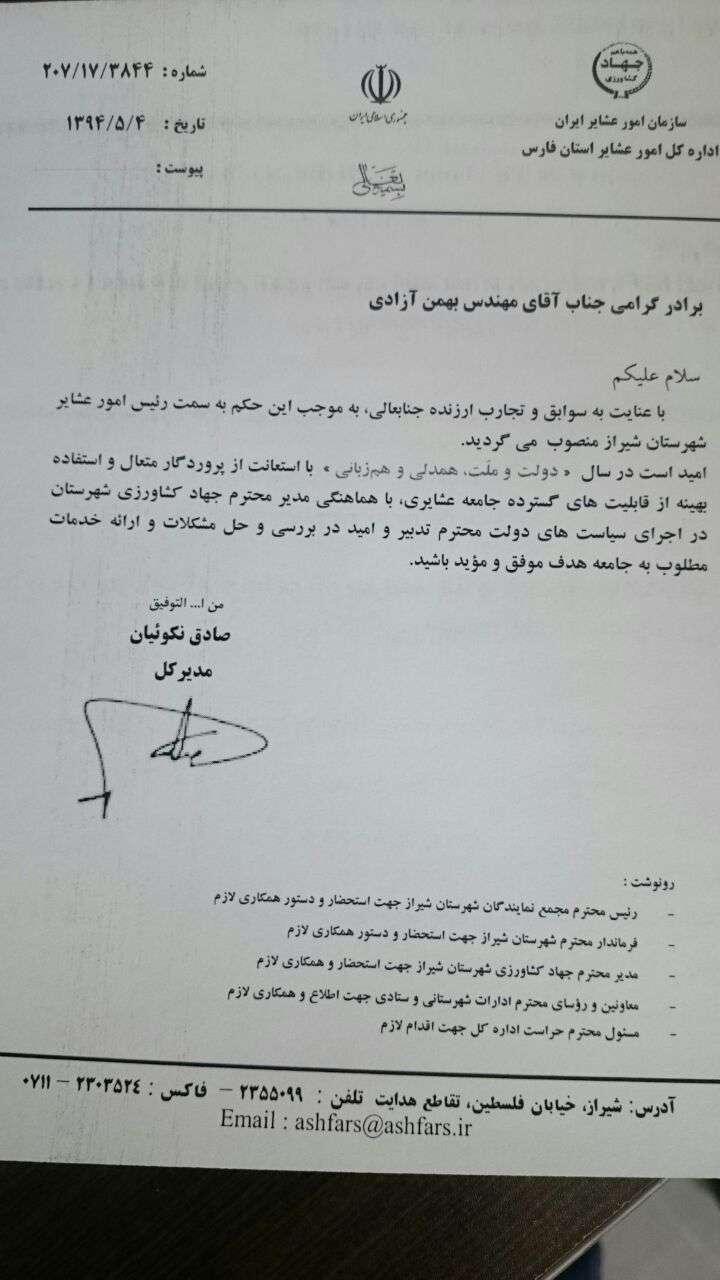 همه با هم
جهاد
کشاورزی
سازمان امور عشایر ایران
اداره کل امور عشایر استان فارس
جمهوری اسلامی ایران
بسمه تعالی
شماره : ۲۰۷/۱۷/۳۸۴۴
تاریخ : ۱۳۹۴/۵/۴
پیوست :
برادر گرامی جناب آقای مهندس بهمن آزادی
سلام علیکم
با عنایت به سوابق و تجارب ارزنده جنابعالی، به موجب این حکم به سمت رئیس امور عشایر
شهرستان شیراز منصوب می گردید.
امید است در سال « دولت و ملّت، همدلی و هم‌زبانی » با استعانت از پروردگار متعال و استفاده
بهینه از قابلیت های گسترده جامعه عشایری، با هماهنگی مدیر محترم جهاد کشاورزی شهرستان
در اجرای سیاست های دولت محترم تدبیر و امید در بررسی و حل مشکلات و ارائه خدمات
مطلوب به جامعه هدف موفق و مؤید باشید.
من ا... التوفیق
صادق نکوئیان
مدیرکل
رونوشت :
- رئیس محترم مجمع نمایندگان شهرستان شیراز جهت استحضار و دستور همکاری لازم
- فرماندار محترم شهرستان شیراز جهت استحضار و دستور همکاری لازم
- مدیر محترم جهاد کشاورزی شهرستان شیراز جهت استحضار و همکاری لازم
- معاونین و رؤسای محترم ادارات شهرستانی و ستادی جهت اطلاع و همکاری لازم
- مسئول محترم حراست اداره کل جهت اقدام لازم
آدرس: شیراز، خیابان فلسطین، تقاطع هدایت تلفن : ۲۳۵۵۰۹۹ – فاکس : ۲۳۰۳۵۲۴ – ۰۷۱۱
Email : ashfars@ashfars.ir